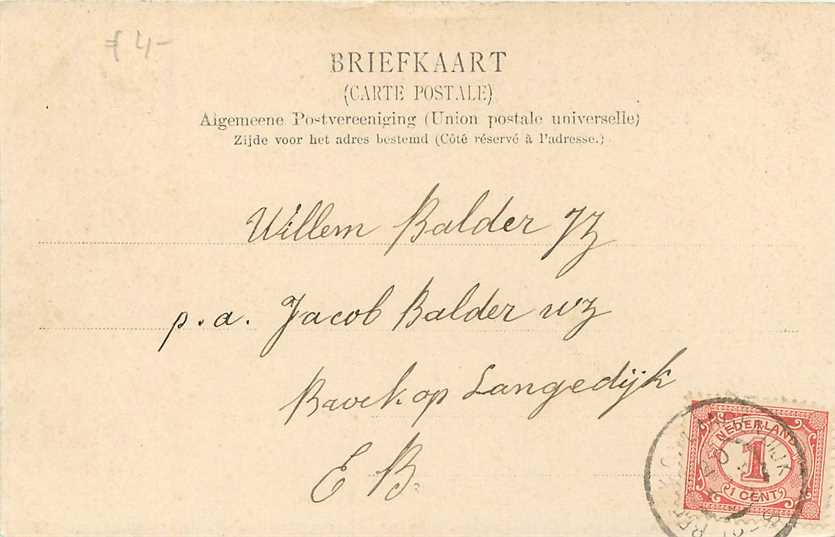 f 4-
BRIEFKAART
(CARTE POSTALE)
Algemeene Postvereeniging (Union postale universelle)
Zijde voor het adres bestemd (Côté réservé à l'adresse.)
Willem Balder Jz
p.a. Jacob Balder wz
Broek op Langedijk
E B.
NEDERLAND
1
1 CENT